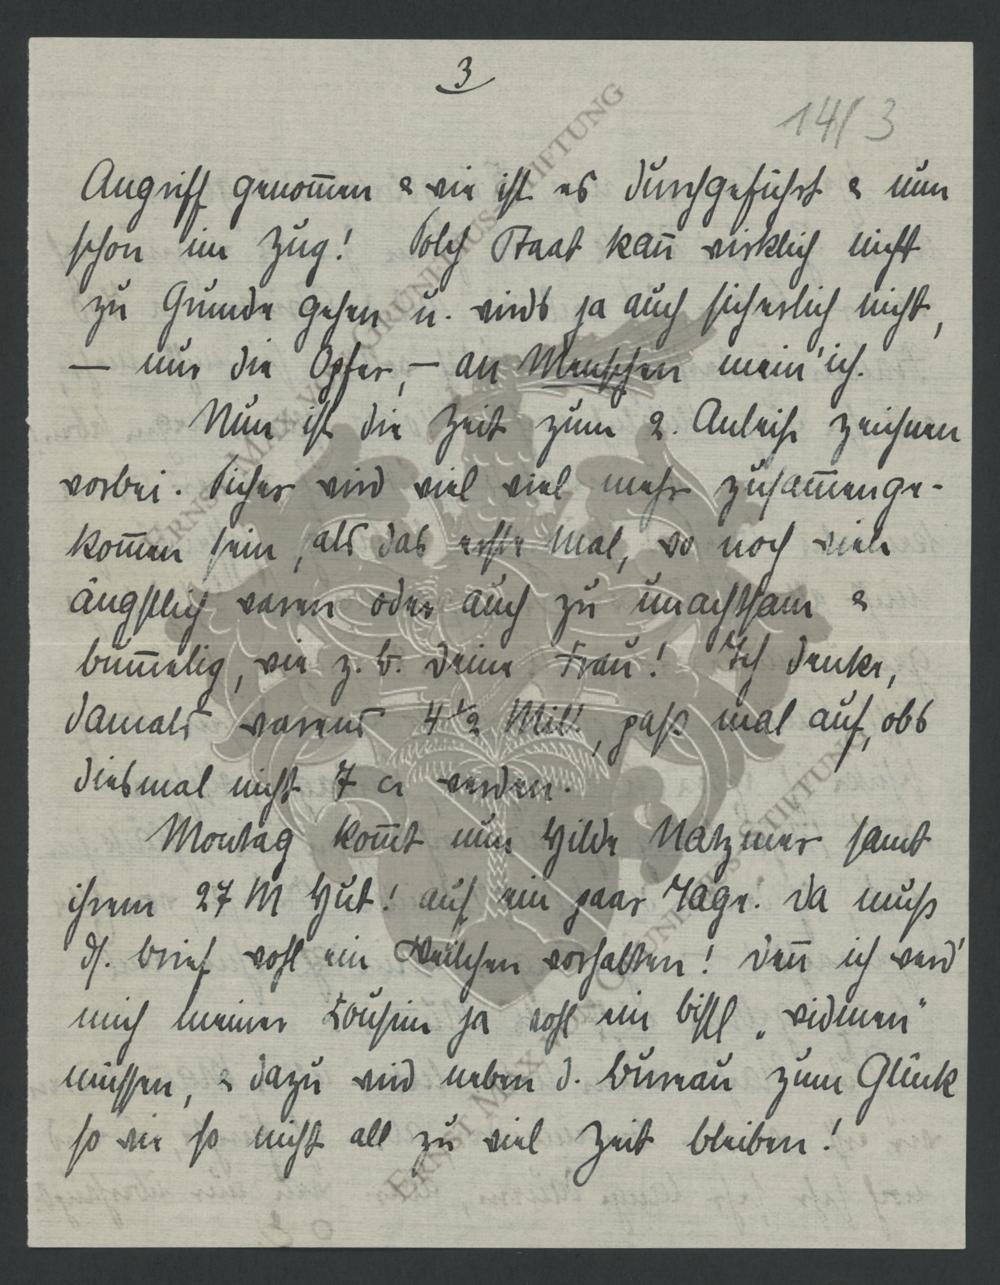 3
14/3
Angriff genom̄en & wie ist es durchgeführt & nun
schon im Zug! Solch Staat kan̄ wirklich nicht
zu Grunde gehen u. wirds ja auch sicherlich nicht,
— nur die Opfer, — an Menschen mein' ich.
Nun ist die Zeit zum 2. Anleihe zeichnen
vorbei. Sicher wird viel viel mehr zusam̄enge-
kom̄en sein, als das erste Mal, wo noch viele
ängstlich waren oder auch zu unachtsam &
bum̄elig, wie z. B. Deine Frau! Ich denke,
damals warens 4 ½ Mill., paß mal auf, obs
diesmal nicht 7 werden.
Montag kom̄t nun Hilde Natzmer samt
ihrem 27 M Hut! auf ein paar Tage. Da muß
ds. Brief wohl ein Weilchen vorhalten! Den̄ ich werd'
mich meiner Cousine ja wohl ein bissl „widmen"
müssen, & dazu wird neben d. Bureau zum Glück
so wie so nicht all zu viel Zeit bleiben!
ERNST MAX VON GRUNELIUS-STIFTUNG
ERNST MAX VON GRUNELIUS-STIFTUNG